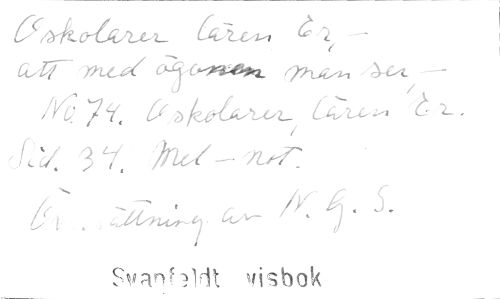 O skolarer lären Er, -
att med ögonen man ser, -
No. 74. O skolarer, lären Er.
Sid. 34. Mel - not.
Översättning av N. G. S.
Svanfeldt visbok